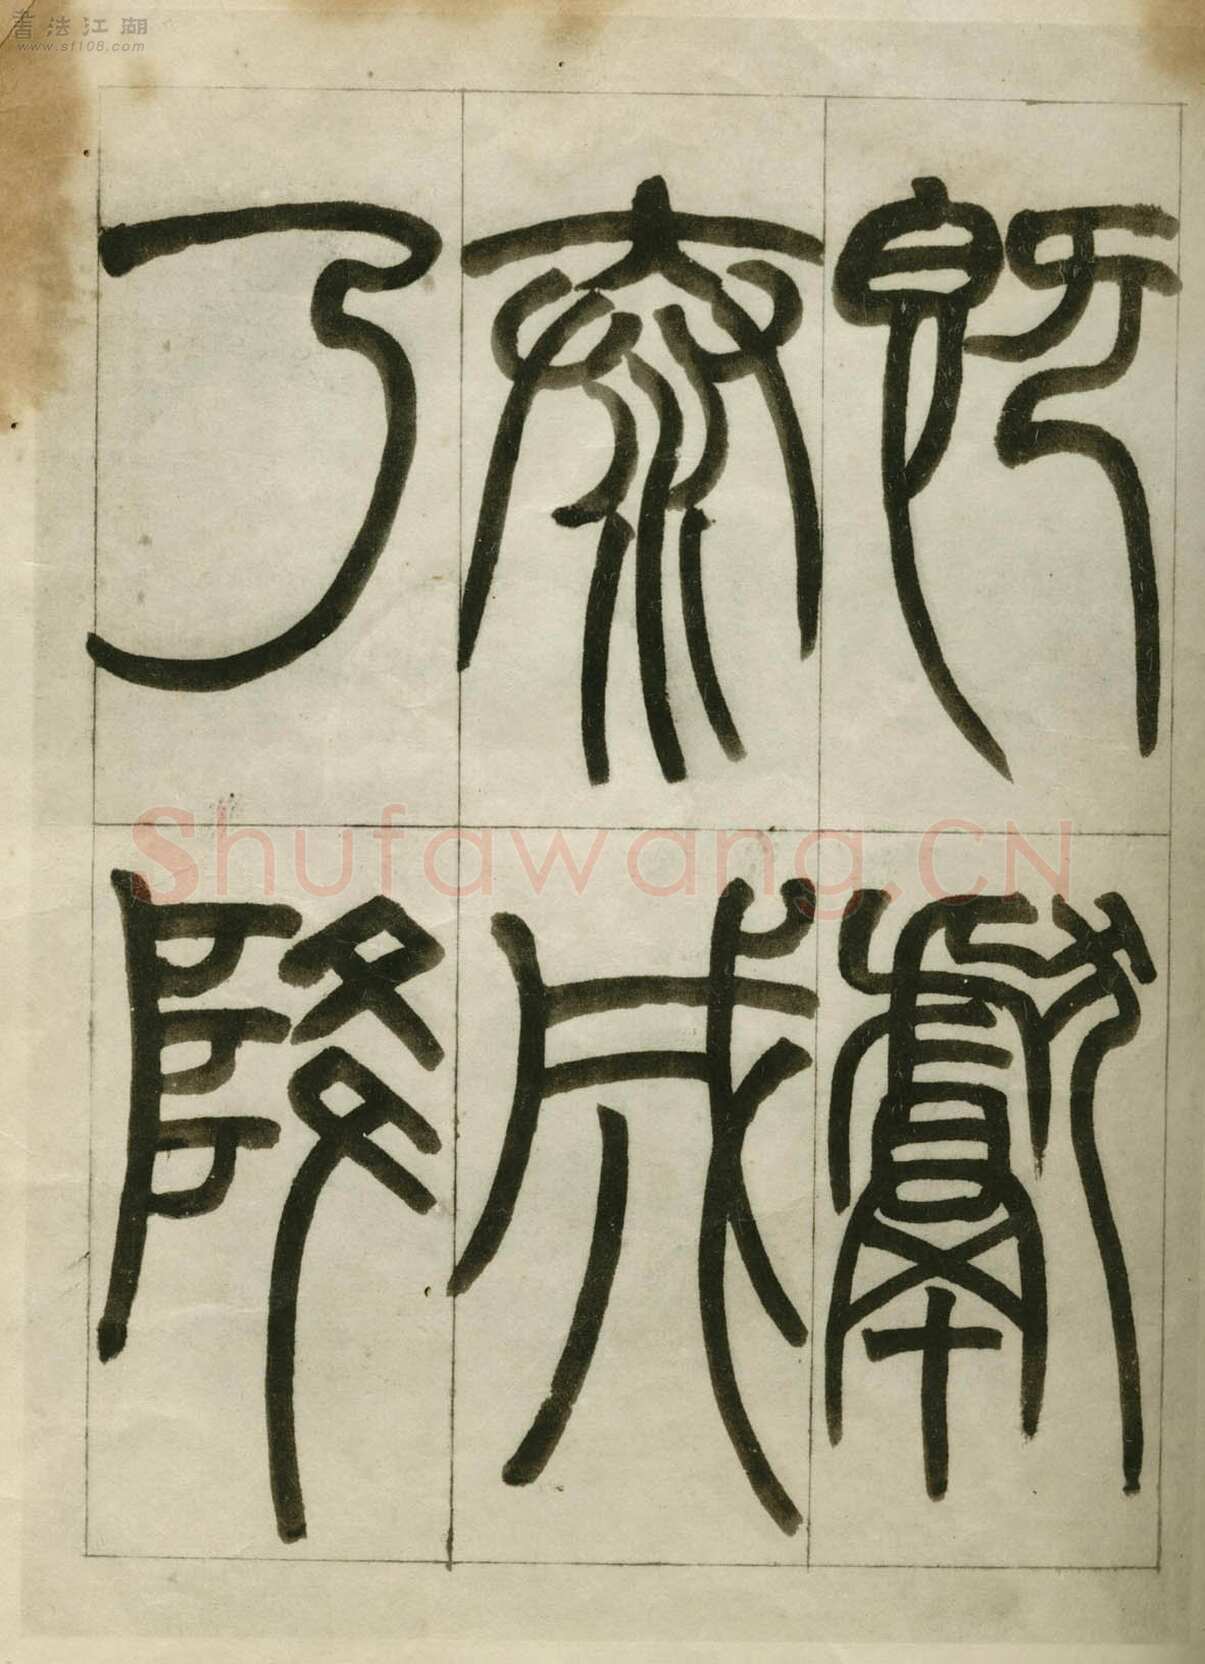 既獻
泰成
乃降
書法江湖
www.sf108.com
Shufawang.CN